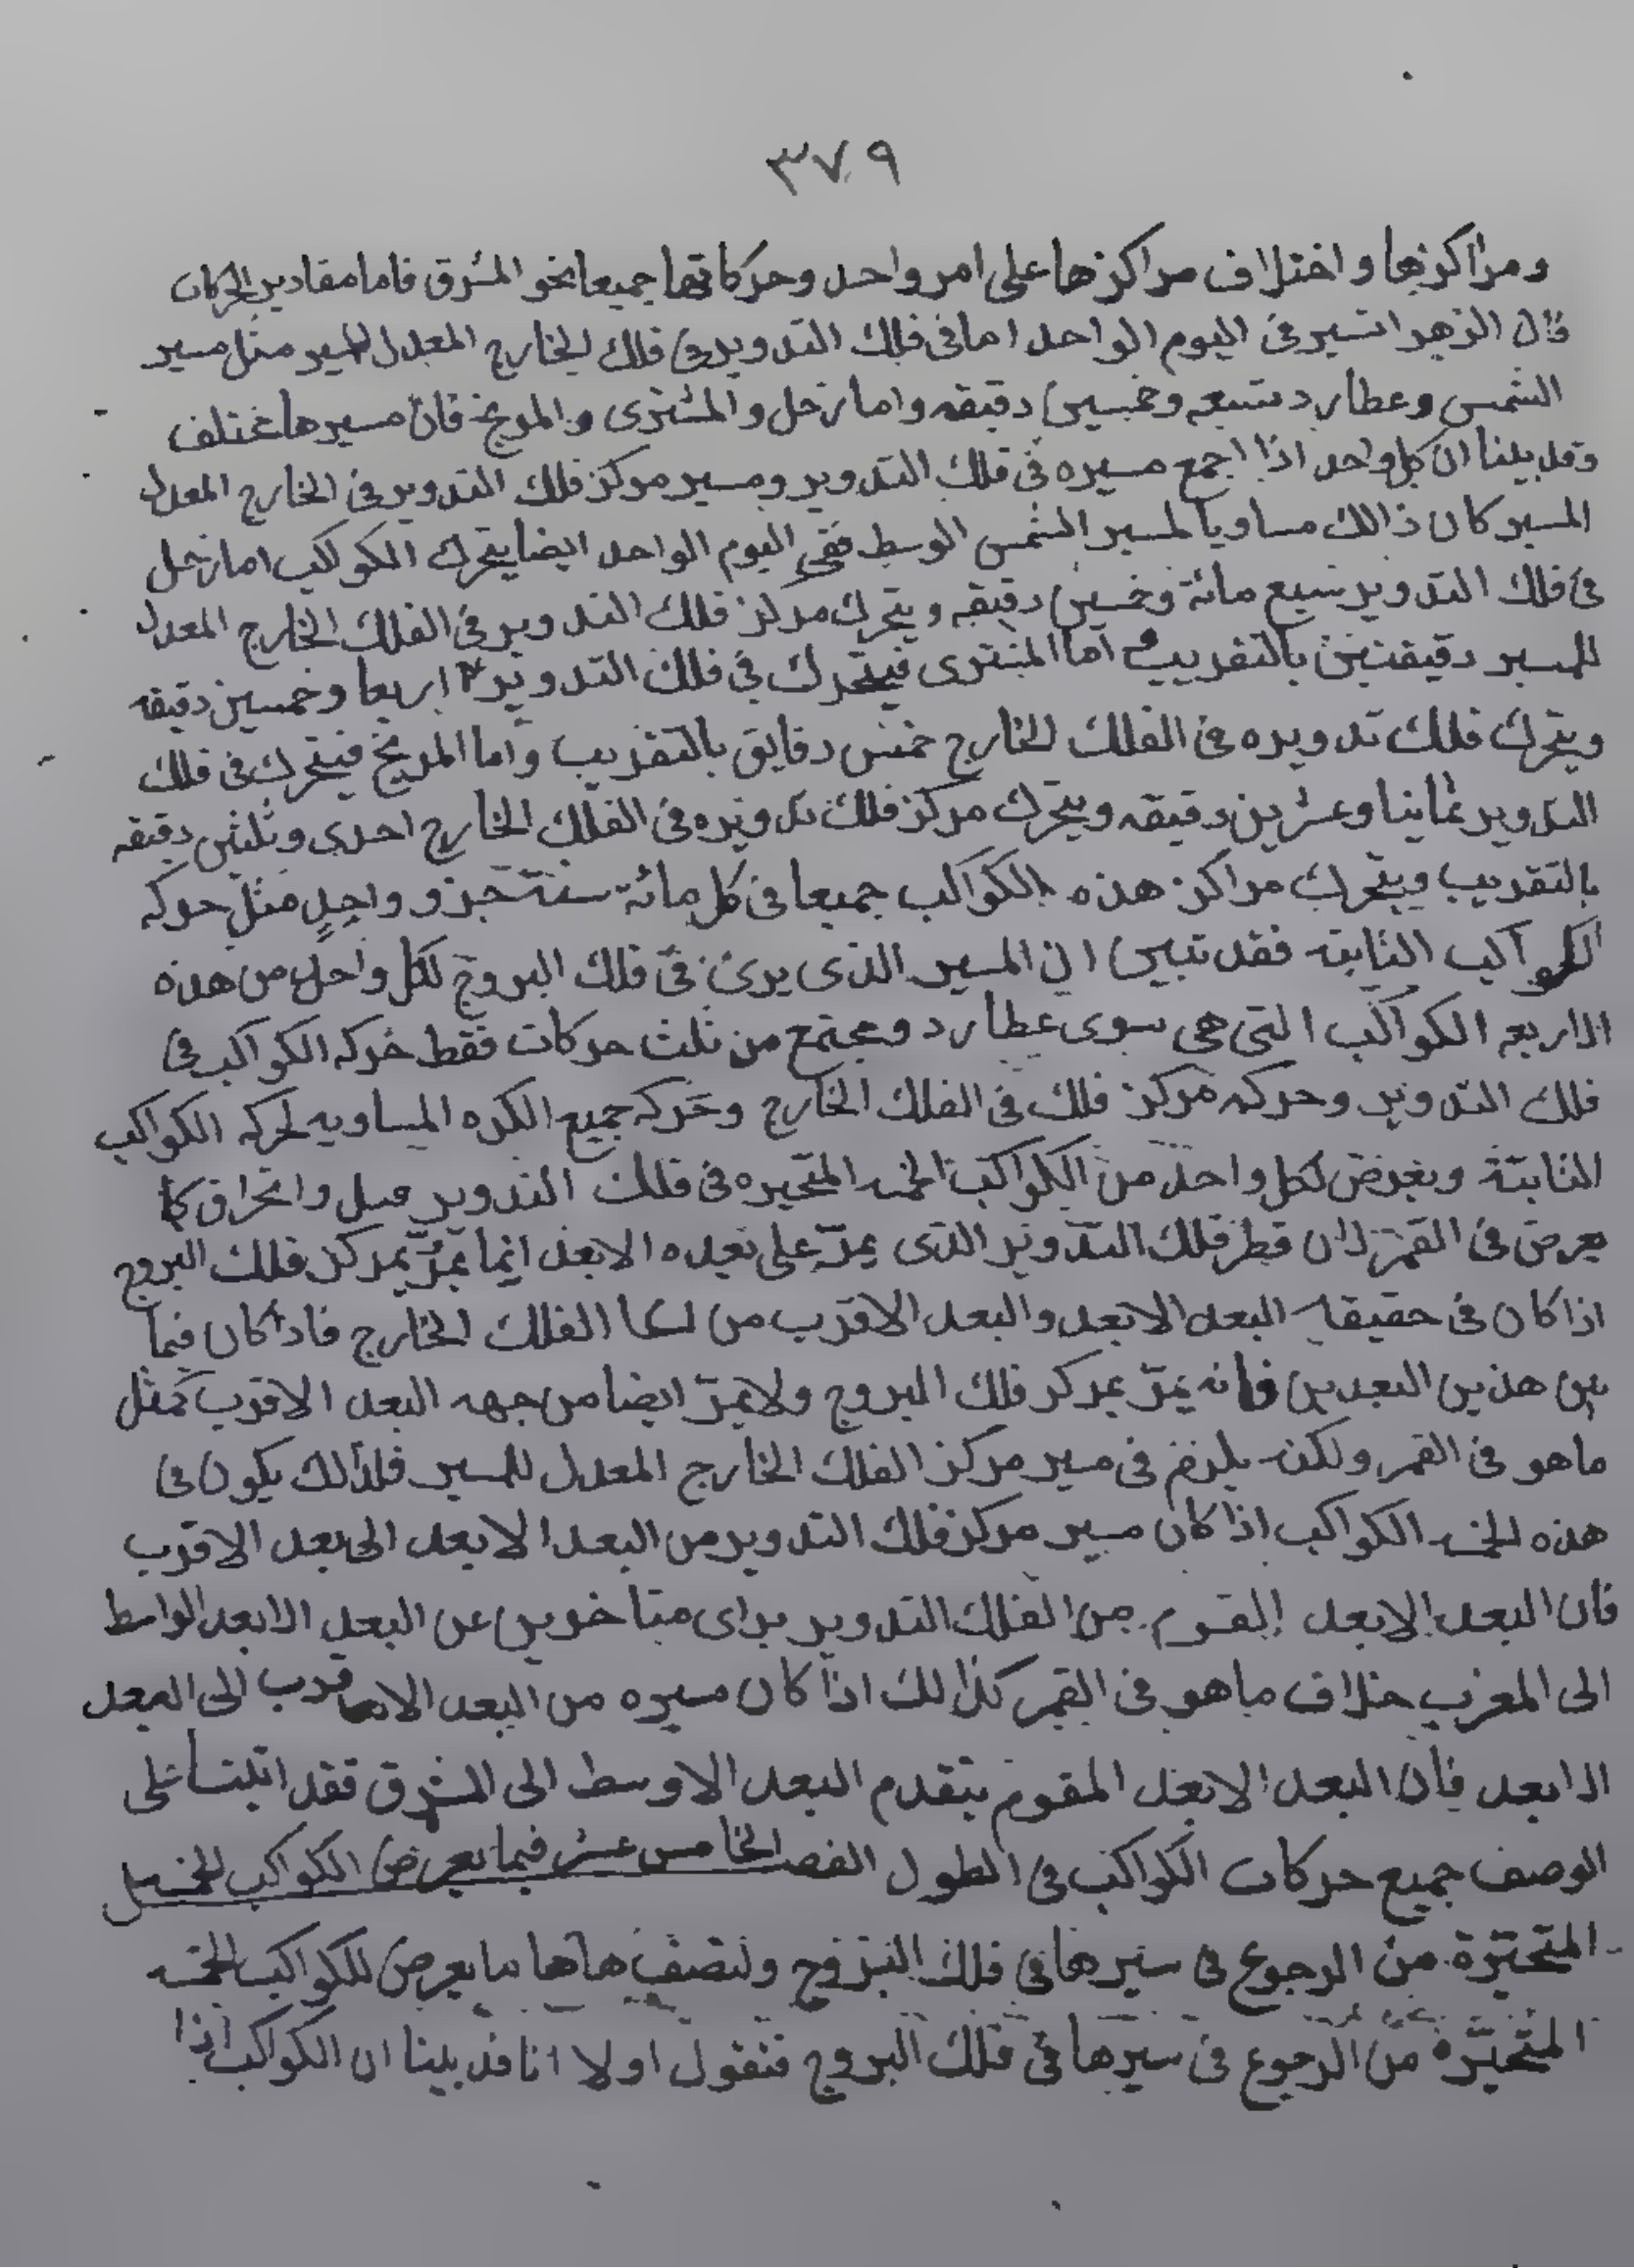 ٣٧٩
ومراكزها واختلاف مراكزها على امر واحد وحركاتها جميعا نحو المشرق فاما مقادير الحركات
فان الزهرا تسير فى اليوم الواحد اما فى فلك التدوير وفى فلك الخارج المعدل المسير مثل مسير
الشمس وعطارد تسعه وخمسين دقيقه واما زحل والمشترى والمريخ فان مسيرها مختلف
وقد بينا ان كل واحد اذا اجمع مسيره فى فلك التدوير ومسير مركز فلك التدوير فى الخارج المعدل
المسير كان ذالك مساويا لمسير الشمس الوسط ففى اليوم الواحد ايضا يتحرك الكوكب اما زحل
فى فلك التدوير سبع مائة وخمسين دقيقه ويتحرك مركز فلك التدوير فى الفلك الخارج المعدل
للمسير دقيقتين بالتقريب اما المشترى فيتحرك فى فلك التدوير اربعا وخمسين دقيقه
ويتحرك فلك تدويره فى الفلك الخارج خمس دقايق بالتقريب واما المريخ فيتحرك فى فلك
التدوير ثمانيا وعشرين دقيقه ويتحرك مركز فلك تدويره فى الفلك الخارج احدى وثلثين دقيقه
بالتقريب ويتحرك مراكز هذه الكواكب جميعا فى كل مائة سنة جزو واحد مثل حركه
الكواكب الثابته فقد تبين ان المسير الذى يرى فى فلك البروج لكل واحد من هذه
الاربعه الكواكب التى هى سوى عطارد ومجتمع من ثلث حركات فقط حركه الكواكب فى
فلك التدوير وحركه مركز فلك فى الفلك الخارج وحركه جميع الكره المساويه لحركه الكواكب
الثابتة ويعرض لكل واحد من الكواكب الخمسه المتحيره فى فلك التدوير ميل وانحراق كا
يعرض فى القمر لان قطر فلك التدوير الذى يمرّ على بعده الابعد انما يمرّ بمركز فلك البروج
اذا كان فى حقيقه البعد الابعد والبعد الاقرب من الفلك الخارج فاذا كان فيما
بين هذين البعدين فانه يمرّ بمركز فلك البروج ولا يمرّ ايضا من جهه البعد الاقرب كمثل
ما هو فى القمر ولكنه يلزم فى مسير مركز الفلك الخارج المعدل للمسير فلذلك يكون فى
هذه الخمسه الكواكب اذا كان مسير مركز فلك التدوير من البعد الابعد الى بعد الاقرب
فان البعد الابعد المقوم من الفلك التدوير يراى متاخرين عن البعد الابعد الواسط
الى المغرب خلاف ما هو فى القمر كذالك اذا كان مسيره من البعد الاقرب الى البعد
الابعد فان البعد الابعد المقوم يتقدم البعد الاوسط الى المشرق فقد اتينا على
الوصف جميع حركات الكواكب فى الطول الفصل الخامس عشر فيما يعرض الكواكب الخمسه
المتحيّرة من الرجوع فى سيرها فى فلك البروج ولنصف هاها ما يعرض للكواكب الخمسه
المتحيّرة من الرجوع فى سيرها فى فلك البروج فنقول اولا انا قد بينا ان الكواكب اذا